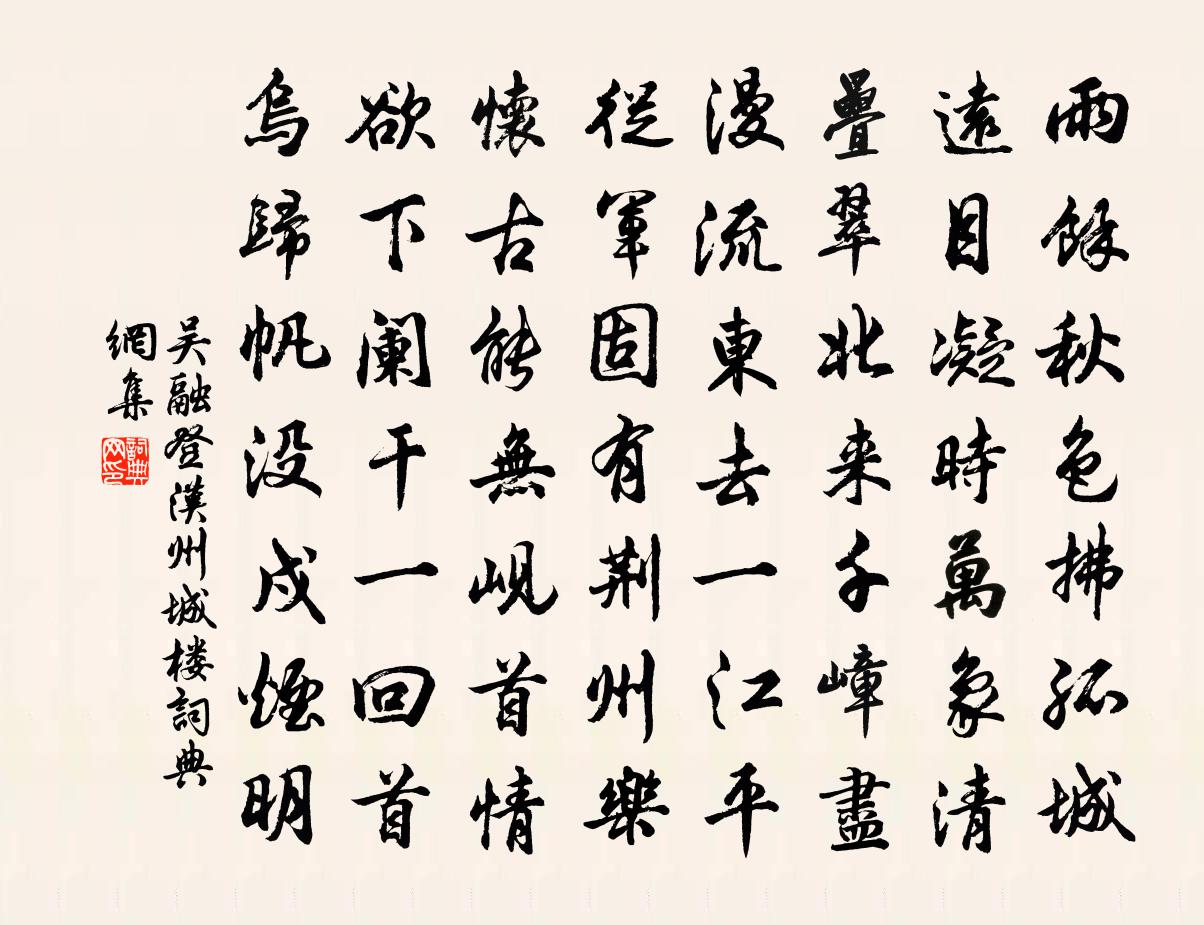 雨餘秋色拂孤城
遠目凝時萬象清
疊翠北来千嶂盡
漫流東去一江平
從軍固有荆州樂
懷古能無峴首情
欲下阑干一回首
烏歸帆没戍煙明
吴融登漢州城楼詞典
網集
詞典网印